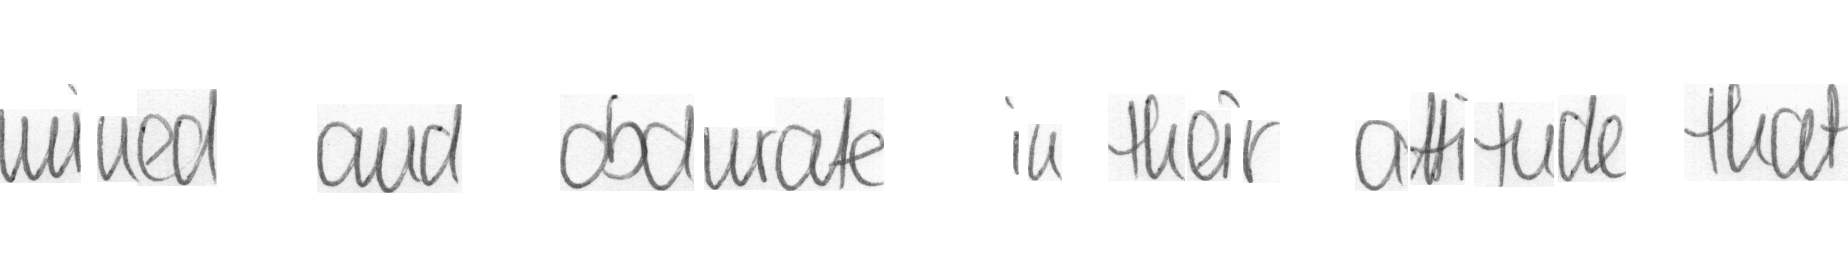 mined and obdurate in their attitude that